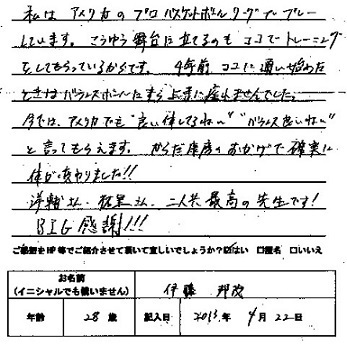 私は アメリカの プロバスケットボールリーグで プレー
しています。こうゆう舞台に立てるのも ココでトレーニング
をしてもらっているからです。4年前 ココに通い始めた
ときは バランスボールに すら 上手に座れませんでした。
今では、アメリカでも"良い体してるねぃ""バランス良いねぃ"
と言ってもらえます。からだ庫房のおかげで確実に
体が変わりました!!
洋輔さん、 さん、二人共最高の先生です!
BIG 感謝!!!
ご感想をHP等でご紹介させて頂いて宜しいでしょうか?☑はい □匿名 □いいえ
お名前
(イニシャルでも構いません) 伊藤 邦
年齢 28 歳 記入日 2013.年 4 月 22 日